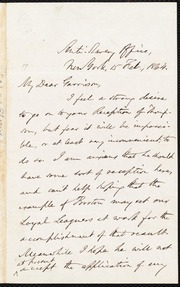 Anti-Slavery Office,
New York, 15 Feb., 1864.
My Dear Garrison,
I feel a strong desire
to go on to your Reception of Thomp-
son, but fear it will be impossi-
ble, or at least very inconvenient to
do so. I am anxious that he should
have some sort of reception here,
and can't help hoping that the
example of Boston may set our
Loyal Leaguers at work for the
accomplishment of that result.
Meanwhile I hope he will not
at present
accept the application of any